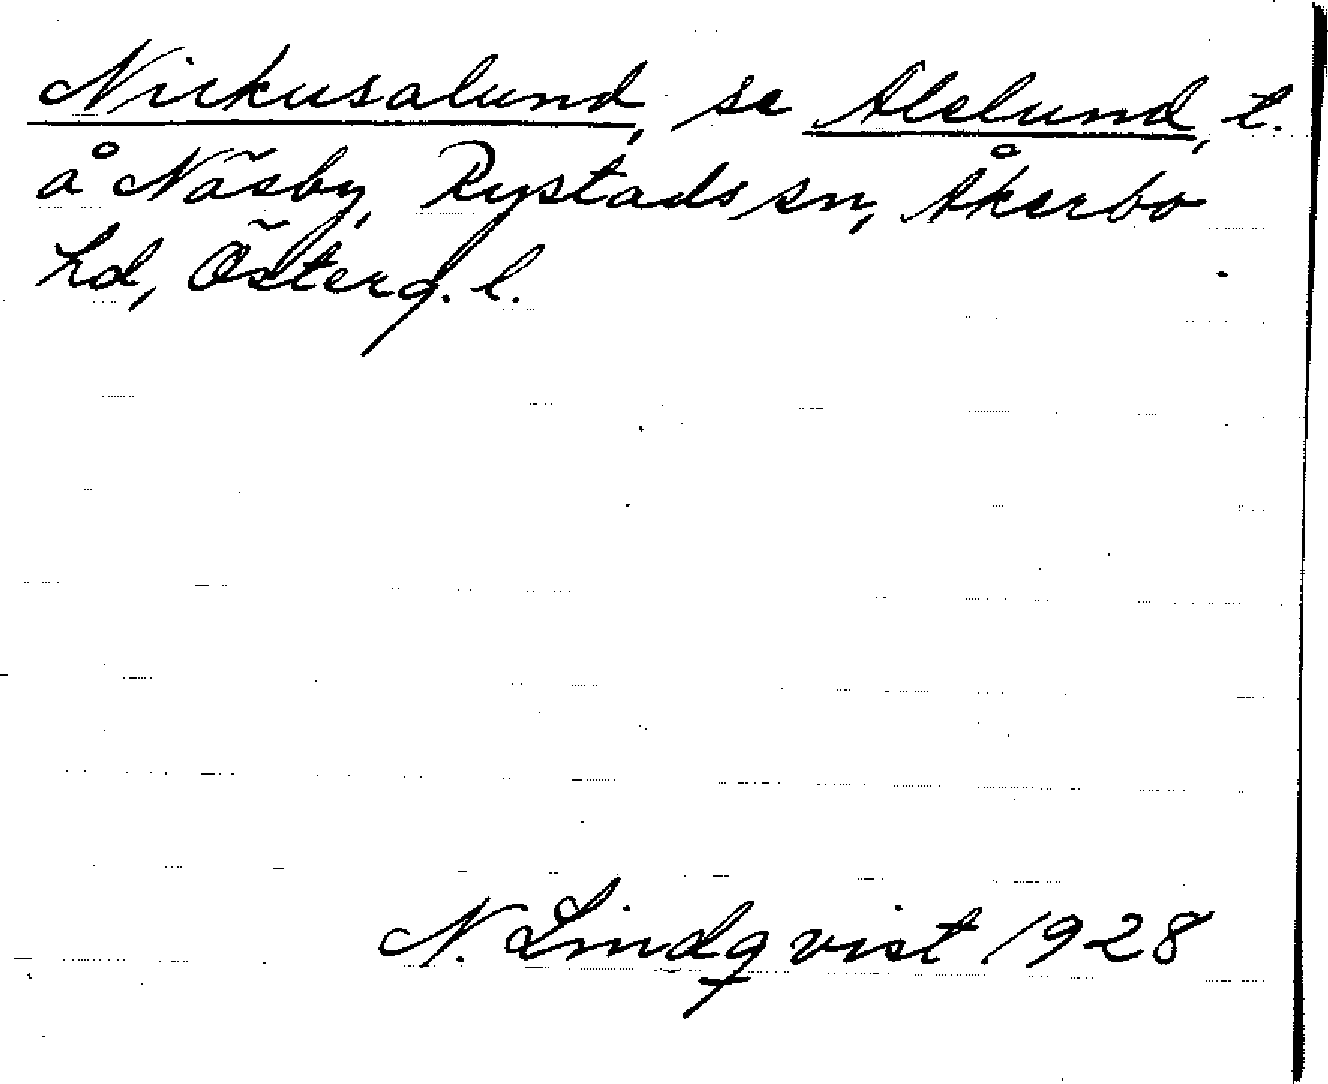 Nickusalund, se Alelund, t.
å Näsby, Rystads sn, Åkerbo
hd, Österg. l.
N. Lindqvist 1928